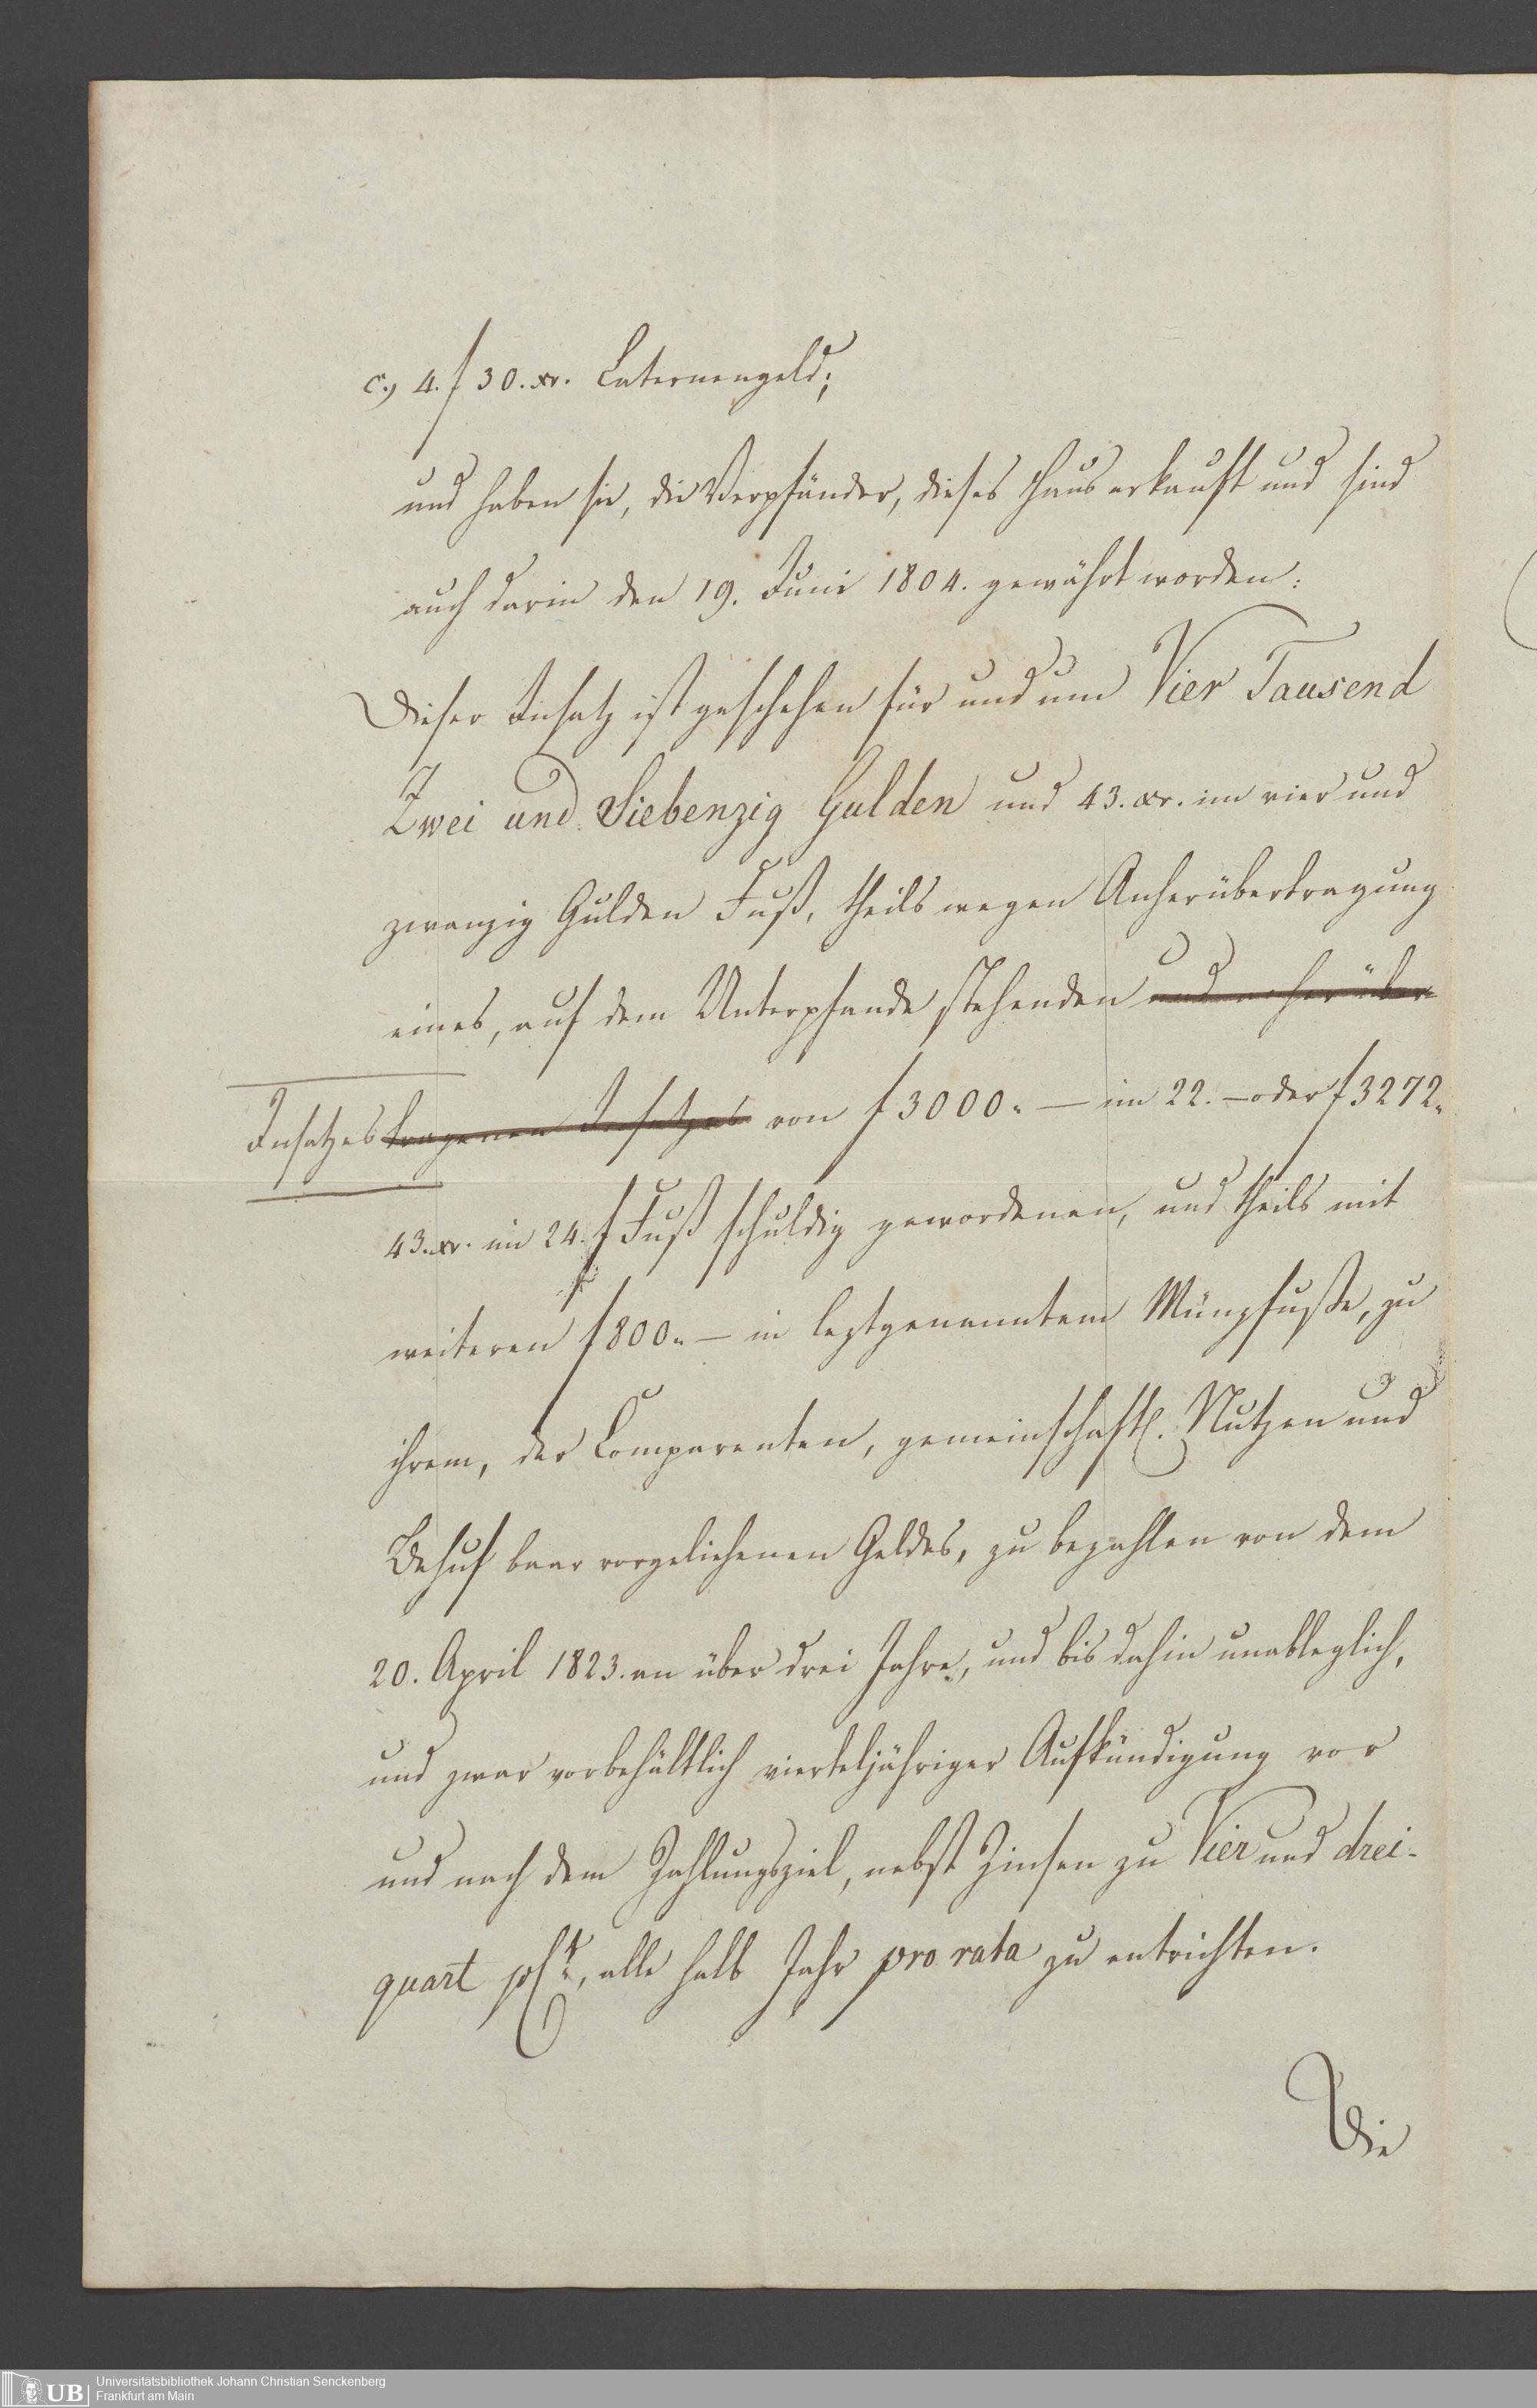 c.) 4. f 30. xr. Laternengeld;
und haben sie, die Verpfänder, dieses Haus erkauft und sind
auch darin den 19. Juni 1804. gewährt worden:
Dieser Insatz ist geschehen für und um Vier Tausend
Zwei und Siebenzig Gulden und 43. xr. im vier und
zwanzig Gulden Fuß, theils wegen Anherübertragung
eines, auf dem Unterpfande stehenden und anherüber
Insatzes tragenen Insatzes von f 3000. — im 22. — oder f 3272.
43. xr. im 24. f Fuß schuldig gewordenen, und theils mit
weiteren f 800. — in leztgenanntem Münzfuße, zu
ihrem, der Comparenten, gemeinschaftl. Nutzen und
Behuf baar vorgeliehenen Geldes, zu bezahlen von dem
20. April 1823. an über drei Jahre, und bis dahin unableglich,
und zwar vorbehältlich vierteljähriger Aufkündigung vor
und nach dem Zahlungsziel, nebst Zinsen zu Vier und drei-
quart pCt., alle halb Jahr pro rata zu entrichten.
Die
UB Universitätsbibliothek Johann Christian Senckenberg
Frankfurt am Main